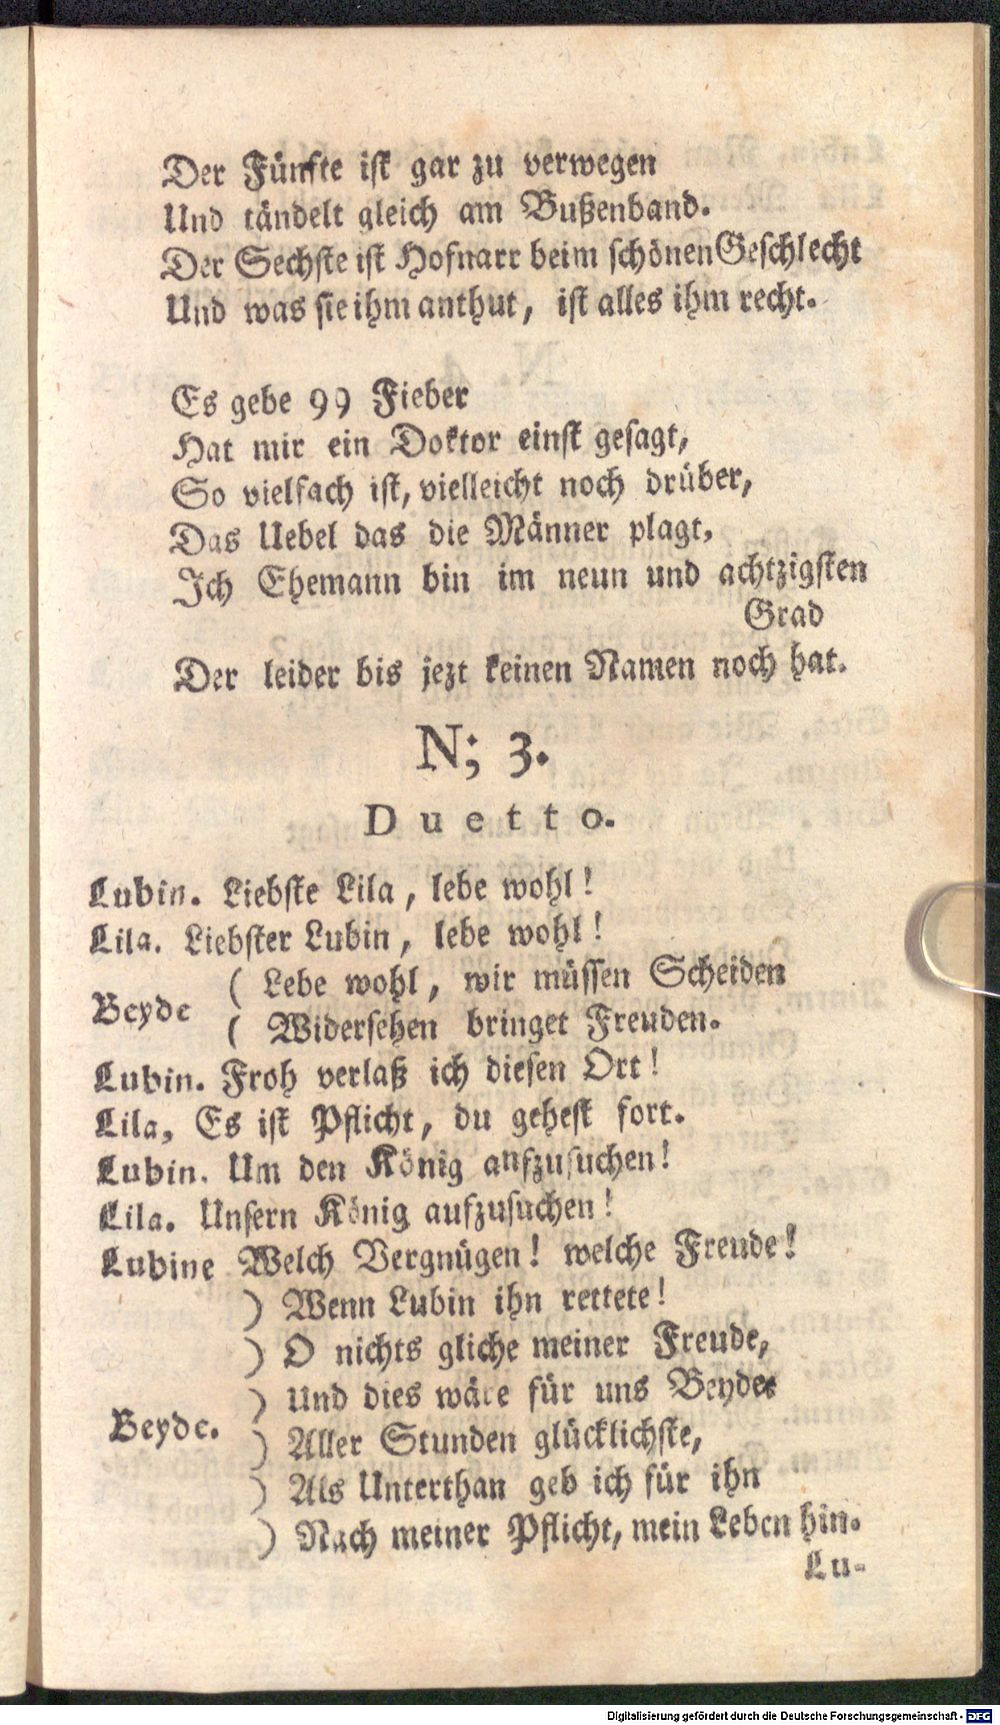 Der Fünfte ist gar zu verwegen
Und tändelt gleich am Bußenband.
Der Sechste ist Hofnarr beim schönen Geschlecht
Und was sie ihm anthut, ist alles ihm recht.
Es gebe 99 Fieber
Hat mir ein Doktor einst gesagt,
So vielfach ist, vielleicht noch drüber,
Das Uebel das die Männer plagt,
Ich Ehemann bin im neun und achtzigsten
Grad
Der leider bis jezt keinen Namen noch hat.
N; 3.
Duetto.
Lubin. Liebste Lila, lebe wohl!
Lila. Liebster Lubin, lebe wohl!
Beyde ( Lebe wohl, wir müssen Scheiden
( Widersehen bringet Freuden.
Lubin. Froh verlaß ich diesen Ort!
Lila, Es ist Pflicht, du gehest fort.
Lubin. Um den König aufzusuchen!
Lila. Unsern König aufzusuchen!
Lubine Welch Vergnügen! welche Freude!
) Wenn Lubin ihn rettete!
) O nichts gliche meiner Freude,
) Und dies wäre für uns Beyde
Beyde. ) Aller Stunden glücklichste,
) Als Unterthan geb ich für ihn
) Nach meiner Pflicht, mein Leben hin.
Lu-
Digitalisierung gefördert durch die Deutsche Forschungsgemeinschaft - DFG